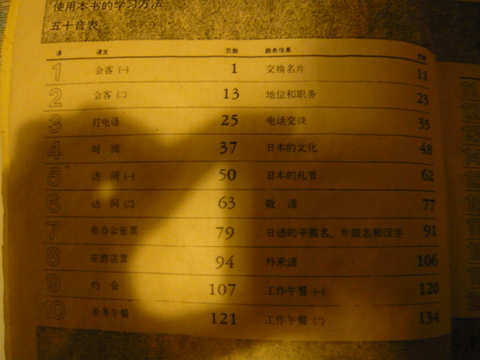 使用本书的学习方法
五十音表
课 课文 页数 商务信息 页数
1 会客 ㈠ 1 交换名片 11
2 会客 ㈡ 13 地位和职务 23
3 打电话 25 电话交谈 35
4 时 间 37 日本的文化 48
5 访 问 ㈠ 50 日本的礼节 62
6 访 问 ㈡ 63 敬 语 77
7 在办公室里 79 日语的平假名、片假名和汉字 91
8 在商店里 94 外来语 106
9 约 会 107 工作午餐 ㈠ 120
10 业务午餐 121 工作午餐 ㈡ 134